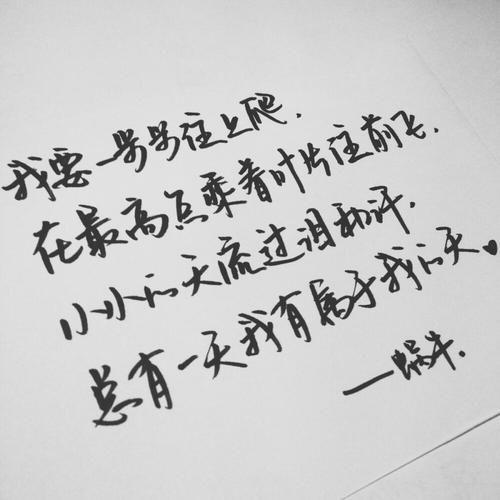 我要一步步往上爬.
在最高点乘着叶片往前飞.
小小的天流过泪和汗.
总有一天我有属于我的天。
——蜗牛.